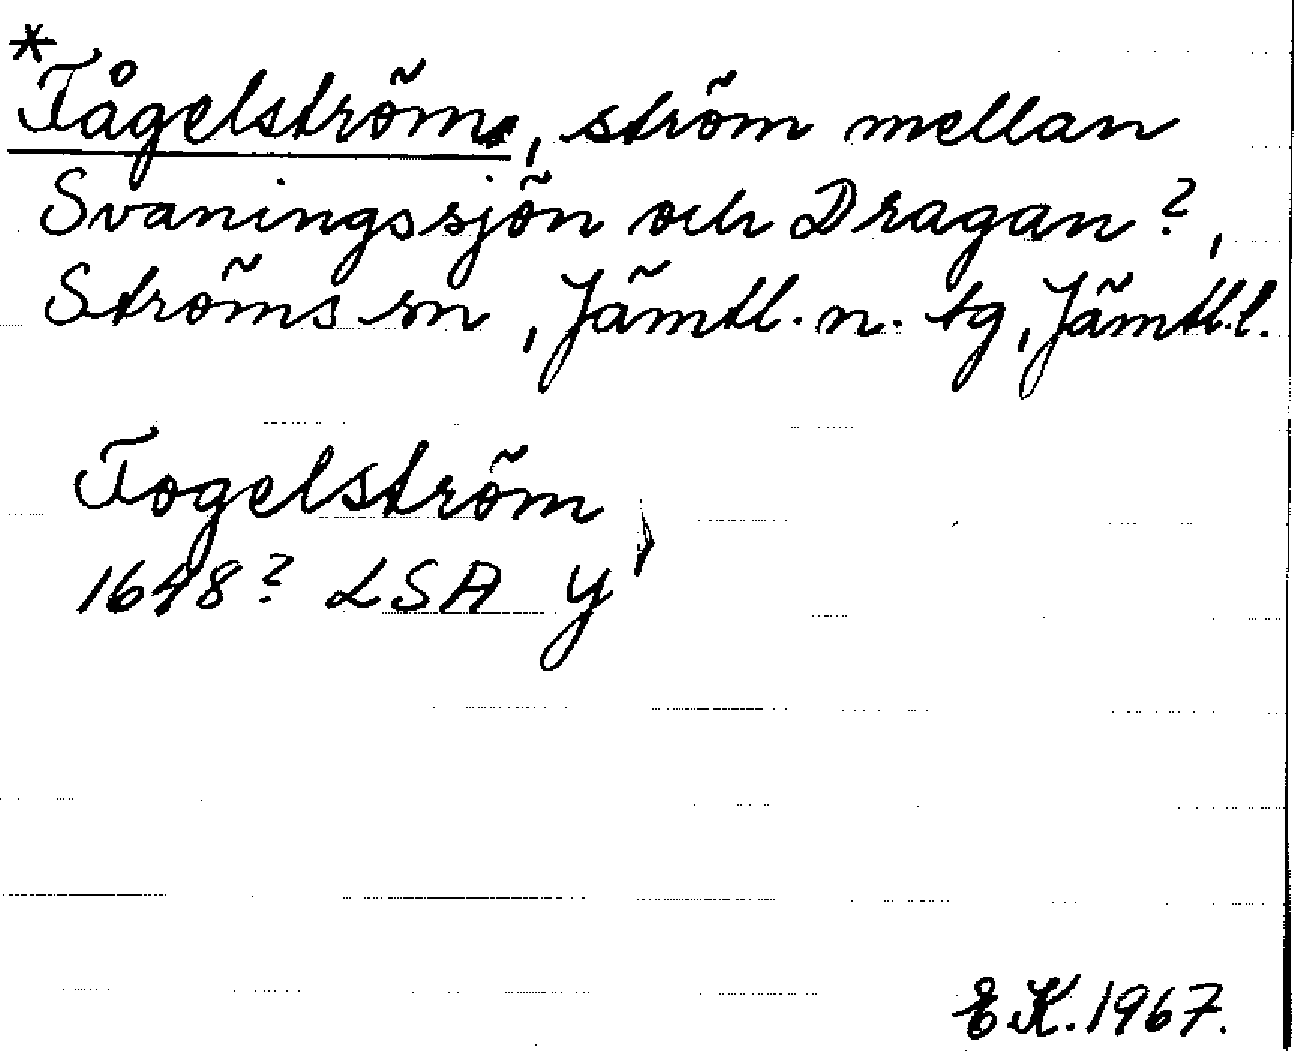 *Tågelström, ström mellan
Svaningssjön och Dragan?,
Ströms sn, Jämtl. n. tg, Jämtl. l.
Togelström
1648? LSA Y
E.K. 1967.